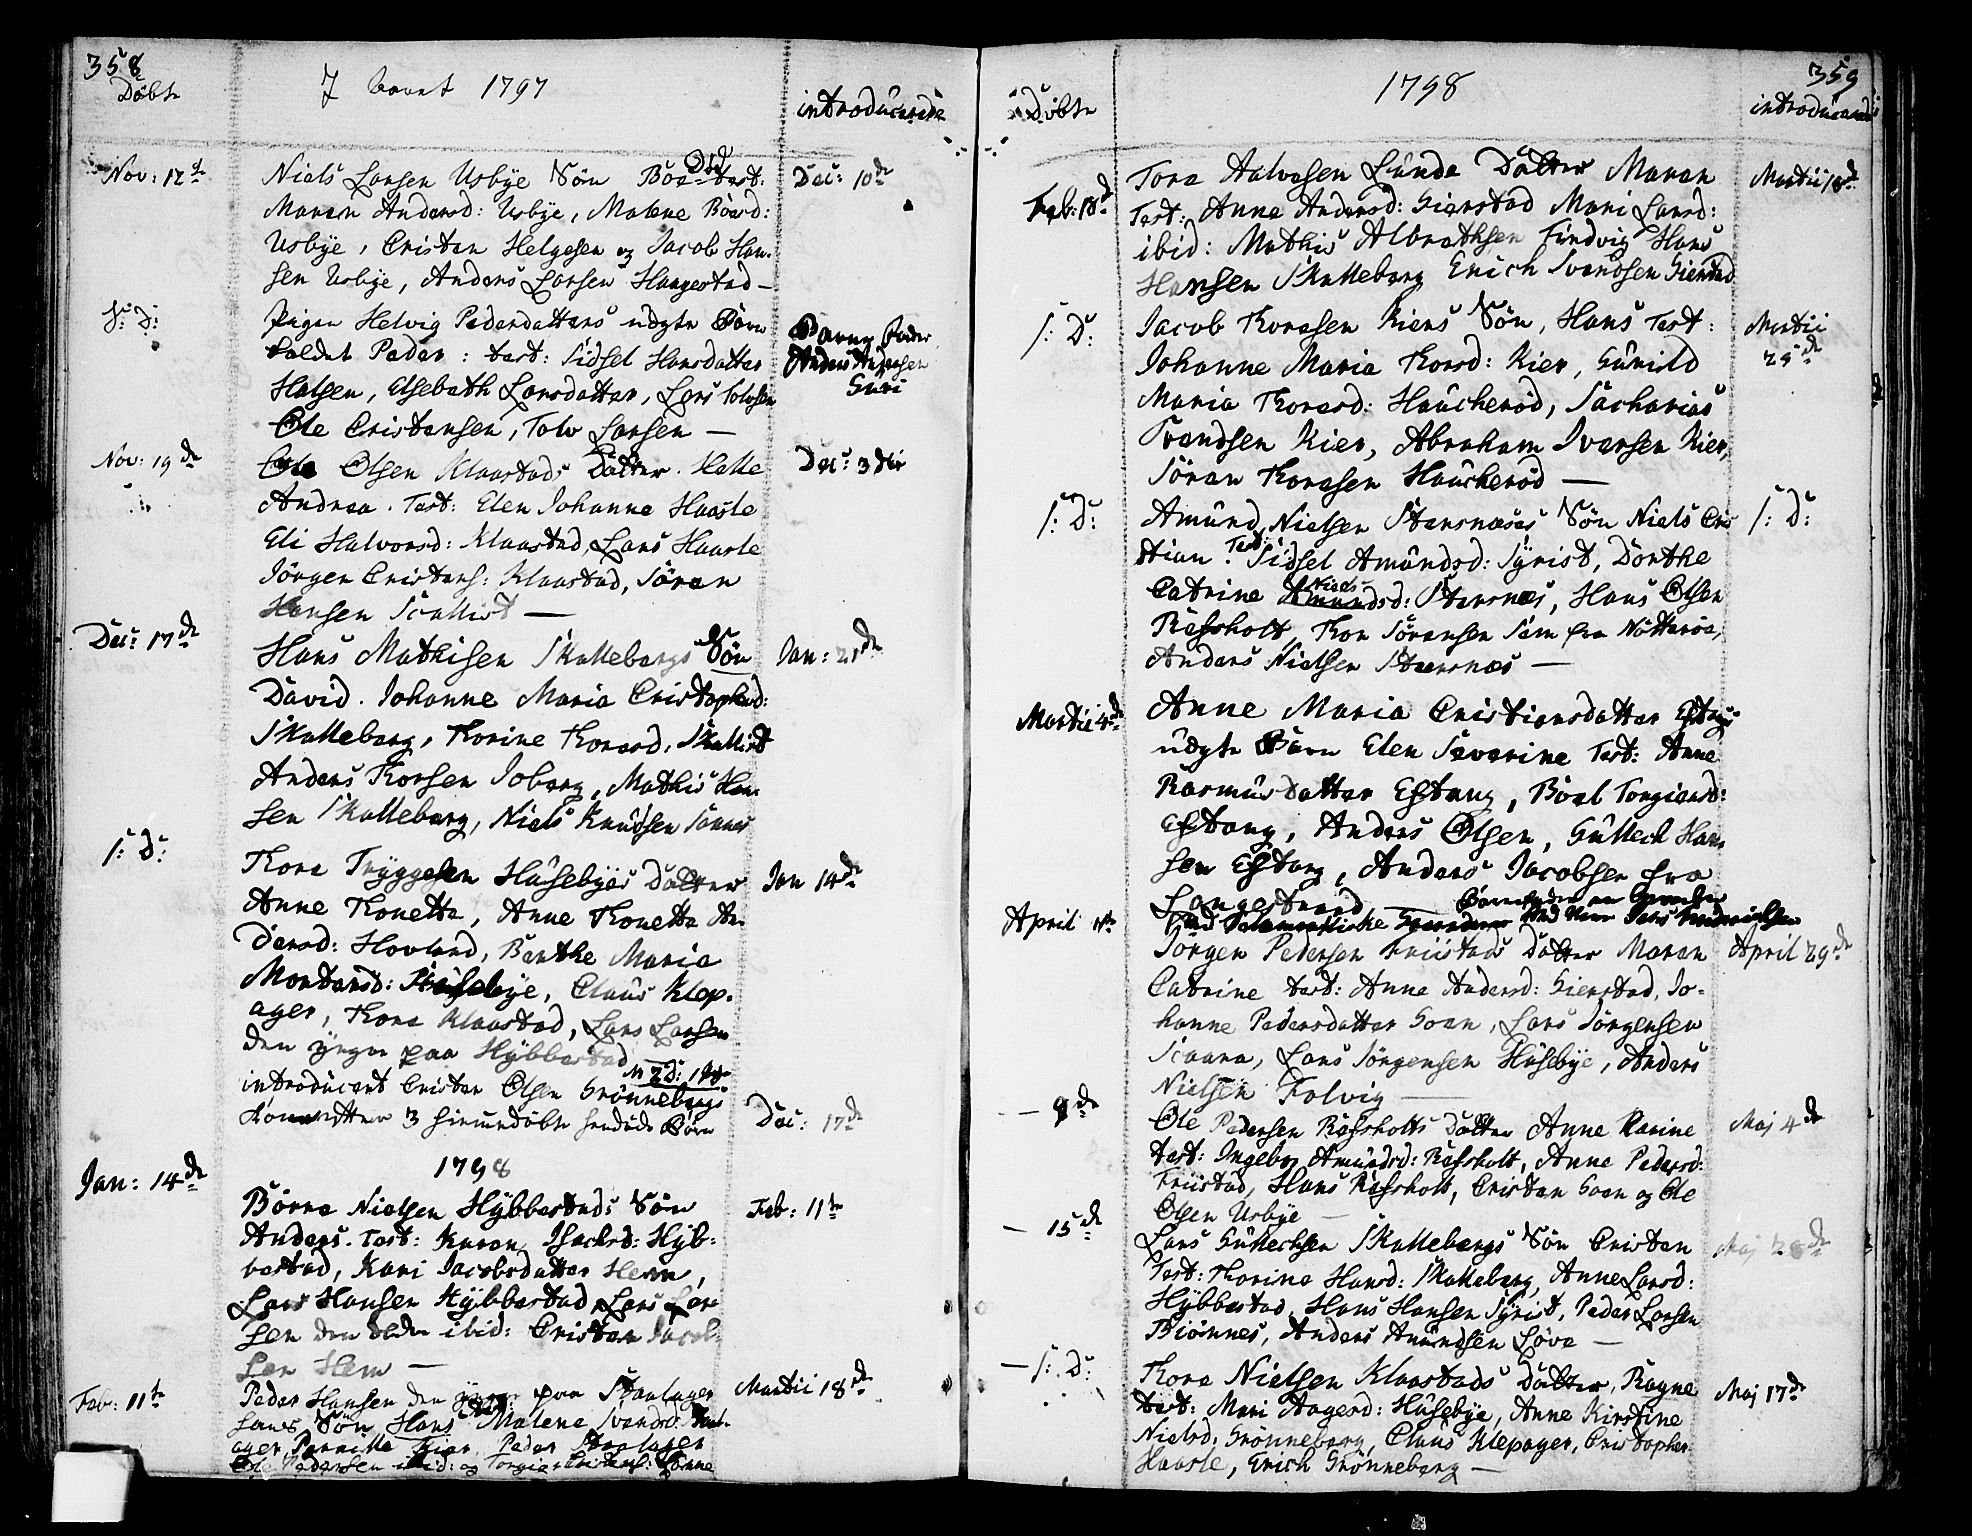 358
Döbte
I Aaret 1797
introducerede
Nov: 12te
Niels Larsen Usbye Sön Test:
Maren Andersd: Usbye, Malene Börsd:
Usbye, Cristen Helgesen og Jacob Han-
sen Usbye, Anders Larsen Haugestad —
Dec: 10de
S: D:
Pigen Helvig Pedersdatters uægte Barn
kaldet Peder: test: Sidsel Hansdatter
Halsen, Elsebeth Larsdatter, Lars Tolvsen
Ole Cristensen, Tolv Larsen —
Barne Fader
Anders Andersen
Nov: 19de
Ole Olsen Klaastads Datter Helle
Andrea. Test: Elen Johanne Haasle
Eli Halvorsd: Klaastad, Lars Haasle
Jörgen Cristens: Klaastad, Sören
Hansen Scallist —
Dec: 3die
Dec: 17de
Hans Mathisen Skallebergs Sön
David. Johanne Maria Cristophersd:
Skalleberg, Thorine Thoresd: Skallist
Anders Thorsen Joberg, Mathis Han-
sen Skalleberg, Niels Knudsen Sönnes
Jan: 21de
S: D:
Thore Tryggesen Husebyes Datter
Anne Thonette, Anne Thonette An-
dersd: Hovland, Berthe Maria
Mortensd: Husebye, Claus Klep-
ager, Thore Klaastad, Lars Larsen
den yngre paa Hybbestad
Jan 14de
introducert Cristen Olsen Grönnebergs
Kone efter 3 hiemmedöbte Börn
Dec: 17de
1798
Jan: 14de
Börre Nielsen Hybbestads Sön
Anders. Test: Karen Isachsd: Hyb-
bestad, Kari Jacobsdatter Hem,
Lars Hansen Hybbestad, Lars Lar-
sen den ældre ibid: Cristen Jacob-
sen Hem —
Feb: 11te
Feb: 11te
Peder Hansen den yngre paa Stenlager
Sön Hans Malene Svendsd:
ager, Pernille Kier, Peder
Ole Pedersen ibid: og
Martii 18de
359
Döbte
1798
introducerede
Feb: 18de
Tore Halvosen Lunde Datter Maren
Test: Anne Andersd: Gierstad Mari Larsd:
ibid: Mathis Albrethsen Findvig Hans
Hansen Skalleberg Erich Svendsen Gierstad
Martii 18de
S: D:
Jacob Thoresen Kiers Sön, Hans Test:
Johanne Maria Thorsd: Kier, Gunild
Maria Thoresd: Haucheröd, Sacharias
Svendsen Kier, Abraham Iversen Kier,
Sören Thoresen Haucheröd —
Martii
25de
S: D:
Amund Nielsen Stensnæses Sön Niels Cris
tian. Test: Sidsel Amundsd: Syrist, Dorthe
Catrine Niels Amundsd: Stensnæs, Hans Olsen
Ræfsholt, Thor Sörensen Sem fra Nötteröe,
Anders Nielsen Stensnæs —
S: D:
Martii 4de
Anne Maria Cristiensdatter Eftangs
uægte Barn Elen Severine Test: Anne
Rasmusdatter Eftang, Böel Torgiersd:
Eftang, Anders Olsen, Gullech Han
sen Eftang, Anders Jacobsen fra
Langestrand —
April 1te
Jörgen Pedersen Friistads Datter Maren
Catrine test: Anne Andersd: Gierstad, Jo-
hanne Pedersdatter Goen, Lars Jörgensen
Scaara, Lars Jörgensen Husebye, Anders
Nielsen Folvig —
April 29de
— 8de
Ole Pedersen Ræfsholts Datter Anne Karine
test: Ingebor Amundsd: Ræfsholt, Anne Pedersd:
Friistad, Hans Ræfsholt, Cristen Goen og Ole
Olsen Usbye —
Maj 4de
— 15de
Lars Gullechsen Skallebergs Sön Cristen
Test: Thorine Hansd: Skalleberg, Anne Larsd:
Hybbestad, Hans Hansen Syrist, Peder Larsen
Biönnes, Anders Amundsen Löve —
Maj 28de
— S: D:
Thore Nielsen Klaastads Datter, Ragne
test: Mari Aagesd: Husebye, Anne Kirstine
Nielsd: Grönneberg, Claus Klepager, Cristopher
Haasle, Erich Grönneberg —
Maj 17de